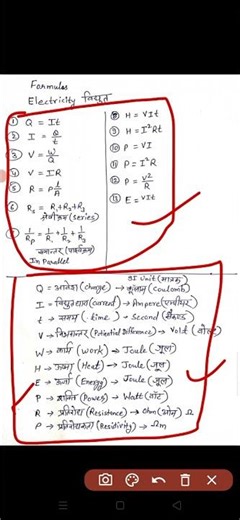 Formulas
Electricity विद्युत
① Q = It
② I = Q/t
③ V = W/Q
④ V = IR
⑤ R = ρ l/A
⑥ Rs = R₁+R₂+R₃
श्रेणीक्रम (series)
⑦ 1/Rp = 1/R₁ + 1/R₂ + 1/R₃
In Parallel
⑧ H = VIt
⑨ H = I²Rt
⑩ P = VI
⑪ P = I²R
⑫ P = V²/R
⑬ E = VIt
SI Unit (मात्रक)
Q = आवेश (charge) → कूलाम (Coulomb)
I = विद्युतधारा (current) → Ampere (एम्पीयर)
t → समय (time) → Second (सैकण्ड)
V → विभवान्तर (Potential Difference) → Volt (वोल्ट)
W → कार्य (work) → Joule (जूल)
H → ऊष्मा (Heat) → Joule (जूल)
E → ऊर्जा (Energy) → Joule (जूल)
P → शक्ति (Power) → Watt (वॉट)
R → प्रतिरोध (Resistence) → Ohm (ओम) Ω
ρ → प्रतिरोधकता (Resitivity) → Ωm